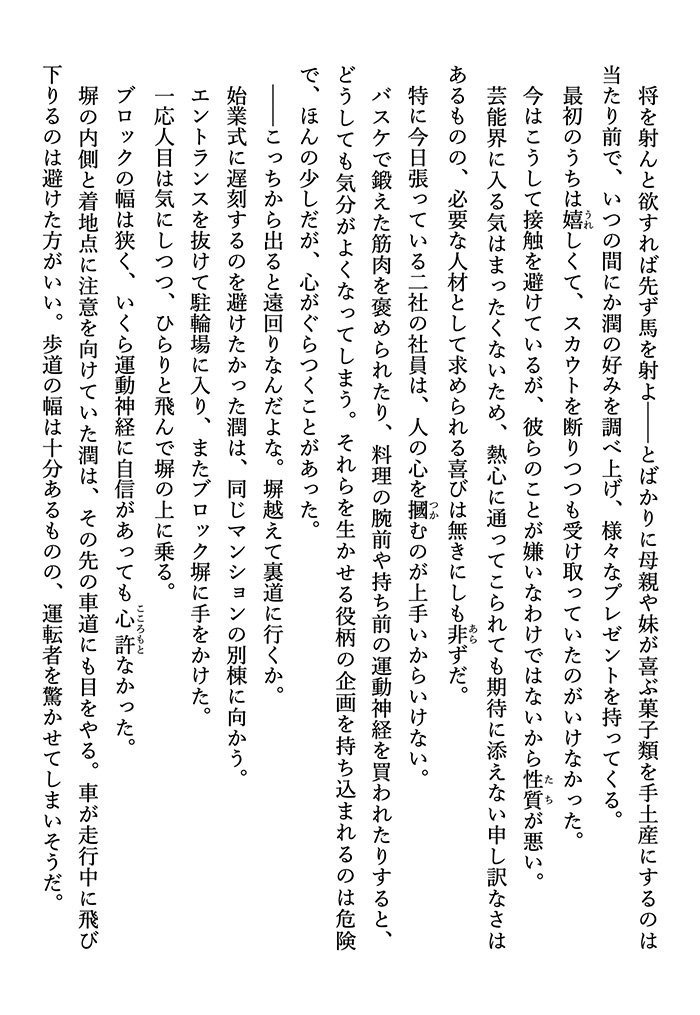 将を射んと欲すれば先ず馬を射よ――とばかりに母親や妹が喜ぶ菓子類を手土産にするのは
当たり前で、いつの間にか潤の好みを調べ上げ、様々なプレゼントを持ってくる。
最初のうちは嬉しくて、スカウトを断りつつも受け取っていたのがいけなかった。
今はこうして接触を避けているが、彼らのことが嫌いなわけではないから性質が悪い。
芸能界に入る気はまったくないため、熱心に通ってこられても期待に添えない申し訳なさは
あるものの、必要な人材として求められる喜びは無きにしも非ずだ。
特に今日張っている二社の社員は、人の心を摑むのが上手いからいけない。
バスケで鍛えた筋肉を褒められたり、料理の腕前や持ち前の運動神経を買われたりすると、
どうしても気分がよくなってしまう。それらを生かせる役柄の企画を持ち込まれるのは危険
で、ほんの少しだが、心がぐらつくことがあった。
――こっちから出ると遠回りなんだよな。塀越えて裏道に行くか。
始業式に遅刻するのを避けたかった潤は、同じマンションの別棟に向かう。
エントランスを抜けて駐輪場に入り、またブロック塀に手をかけた。
一応人目は気にしつつ、ひらりと飛んで塀の上に乗る。
ブロックの幅は狭く、いくら運動神経に自信があっても心許なかった。
塀の内側と着地点に注意を向けていた潤は、その先の車道にも目をやる。車が走行中に飛び
下りるのは避けた方がいい。歩道の幅は十分あるものの、運転者を驚かせてしまいそうだ。